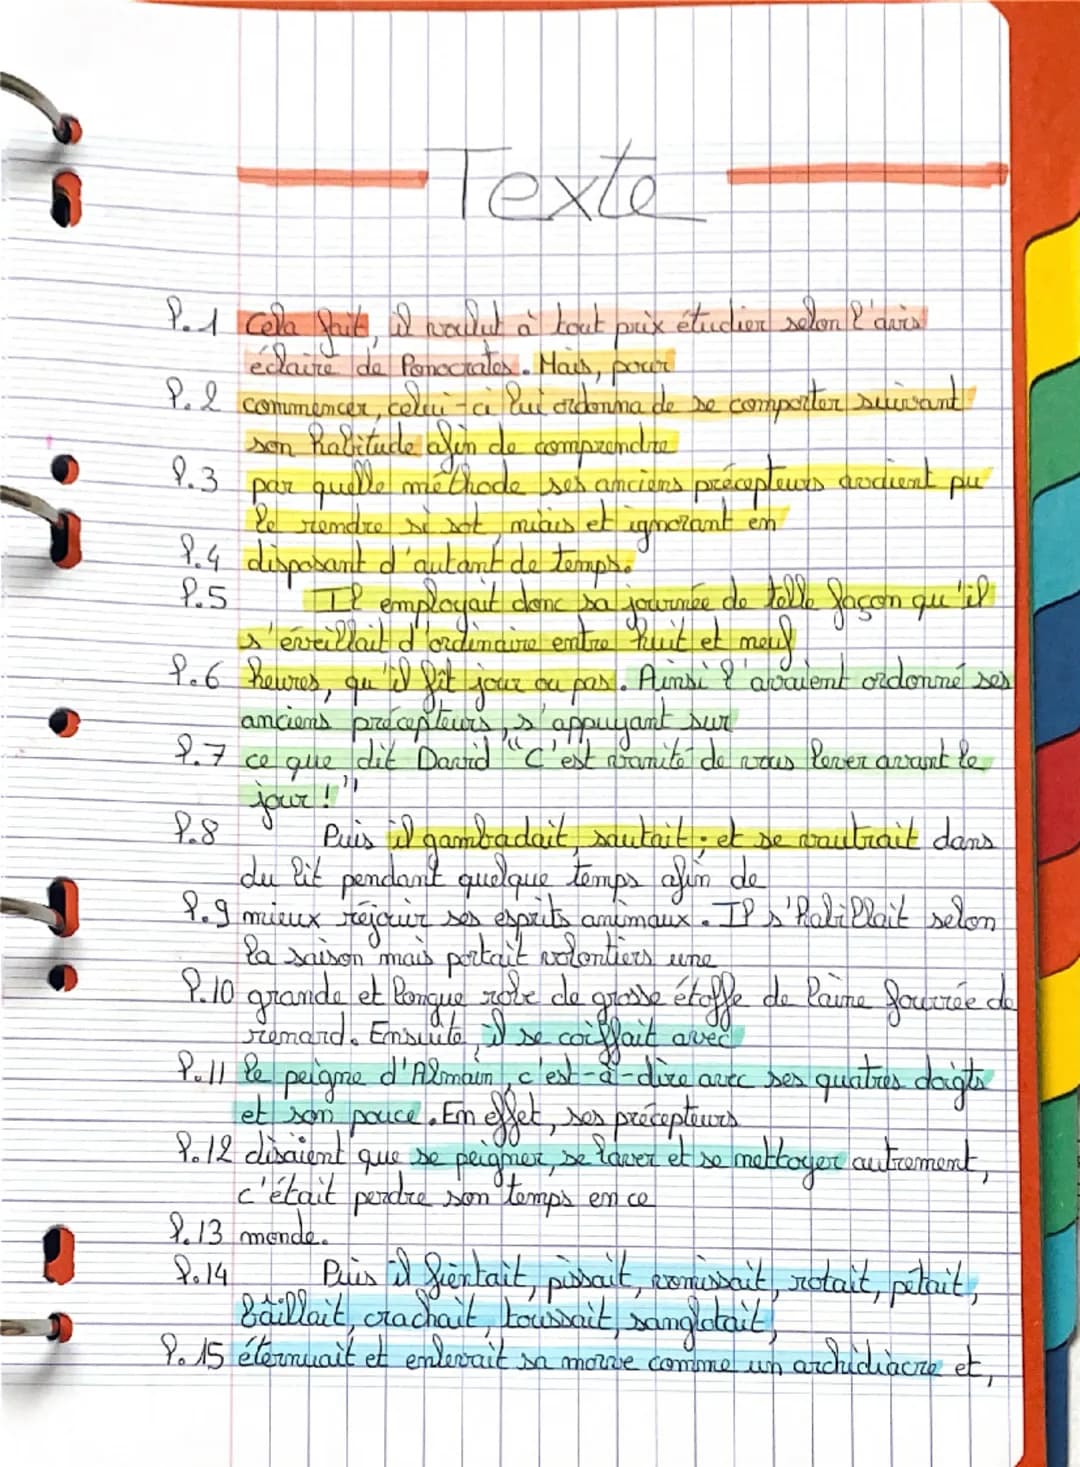 Texte
l.1 Cela fait, il voulut à tout prix étudier selon l'avis
éclaire de Ponocrates. Mais, pour
l.2 commencer, celui-ci lui ordonna de se comporter suivant
son habitude afin de comprendre
l.3 par quelle méthode ses anciens précepteurs avaient pu
le rendre si sot, niais et ignorant en
l.4 disposant d'autant de temps.
l.5 Il employait donc sa journée de telle façon qu'il
s'éveillait d'ordinaire entre huit et neuf
l.6 heures, qu'il fît jour ou pas. Ainsi l'avaient ordonné ses
anciens précepteurs, s'appuyant sur
l.7 ce que dit David "C'est vanité de vous lever avant le
jour !"
l.8 Puis il gambadait, sautait ; et se vautrait dans
du lit pendant quelque temps afin de
l.9 mieux réjouir ses esprits animaux. Il s'habillait selon
la saison mais portait volontiers une
l.10 grande et longue robe de grosse étoffe de laine fourrée de
renard. Ensuite, il se coiffait avec
l.11 le peigne d'Almain, c'est-à-dire avec ses quatres doigts
et son pouce. En effet, ses précepteurs
l.12 disaient que se peigner, se laver et se nettoyer autrement,
c'était perdre son temps en ce
l.13 monde.
l.14 Puis il fientait, pissait, vomissait, rotait, pétait,
bâillait, crachait, toussait, sanglotait,
l.15 éternuait et enlevait sa morve comme un archidiacre et,